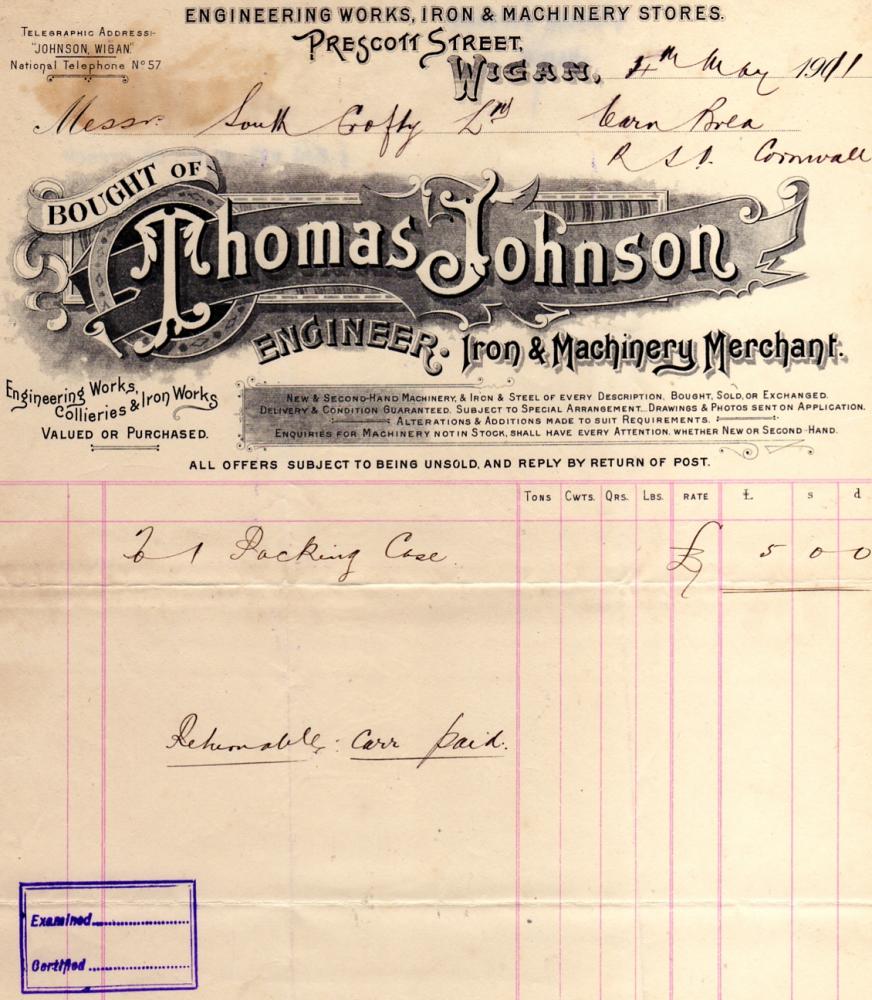 ENGINEERING WORKS, IRON & MACHINERY STORES.
PRESCOTT STREET,
TELEGRAPHIC ADDRESS:-
"JOHNSON, WIGAN."
National Telephone No 57
WIGAN, 4th May 1911
Messrs South Crofty Ld Carn Brea
R S O. Cornwall
BOUGHT OF
Thomas Johnson
ENGINEER: Iron & Machinery Merchant.
Engineering Works,
Collieries & Iron Works
VALUED OR PURCHASED.
NEW & SECOND-HAND MACHINERY, & IRON & STEEL OF EVERY DESCRIPTION, BOUGHT, SOLD, OR EXCHANGED.
DELIVERY & CONDITION GUARANTEED. SUBJECT TO SPECIAL ARRANGEMENT. DRAWINGS & PHOTOS SENT ON APPLICATION.
ALTERATIONS & ADDITIONS MADE TO SUIT REQUIREMENTS.
ENQUIRIES FOR MACHINERY NOT IN STOCK, SHALL HAVE EVERY ATTENTION, WHETHER NEW OR SECOND-HAND.
ALL OFFERS SUBJECT TO BEING UNSOLD, AND REPLY BY RETURN OF POST.
TONS CWTS. QRS. LBS. RATE £ s d
To 1 Packing Case £ 5 0 0
Returnable: carr paid.
Examined
Certified